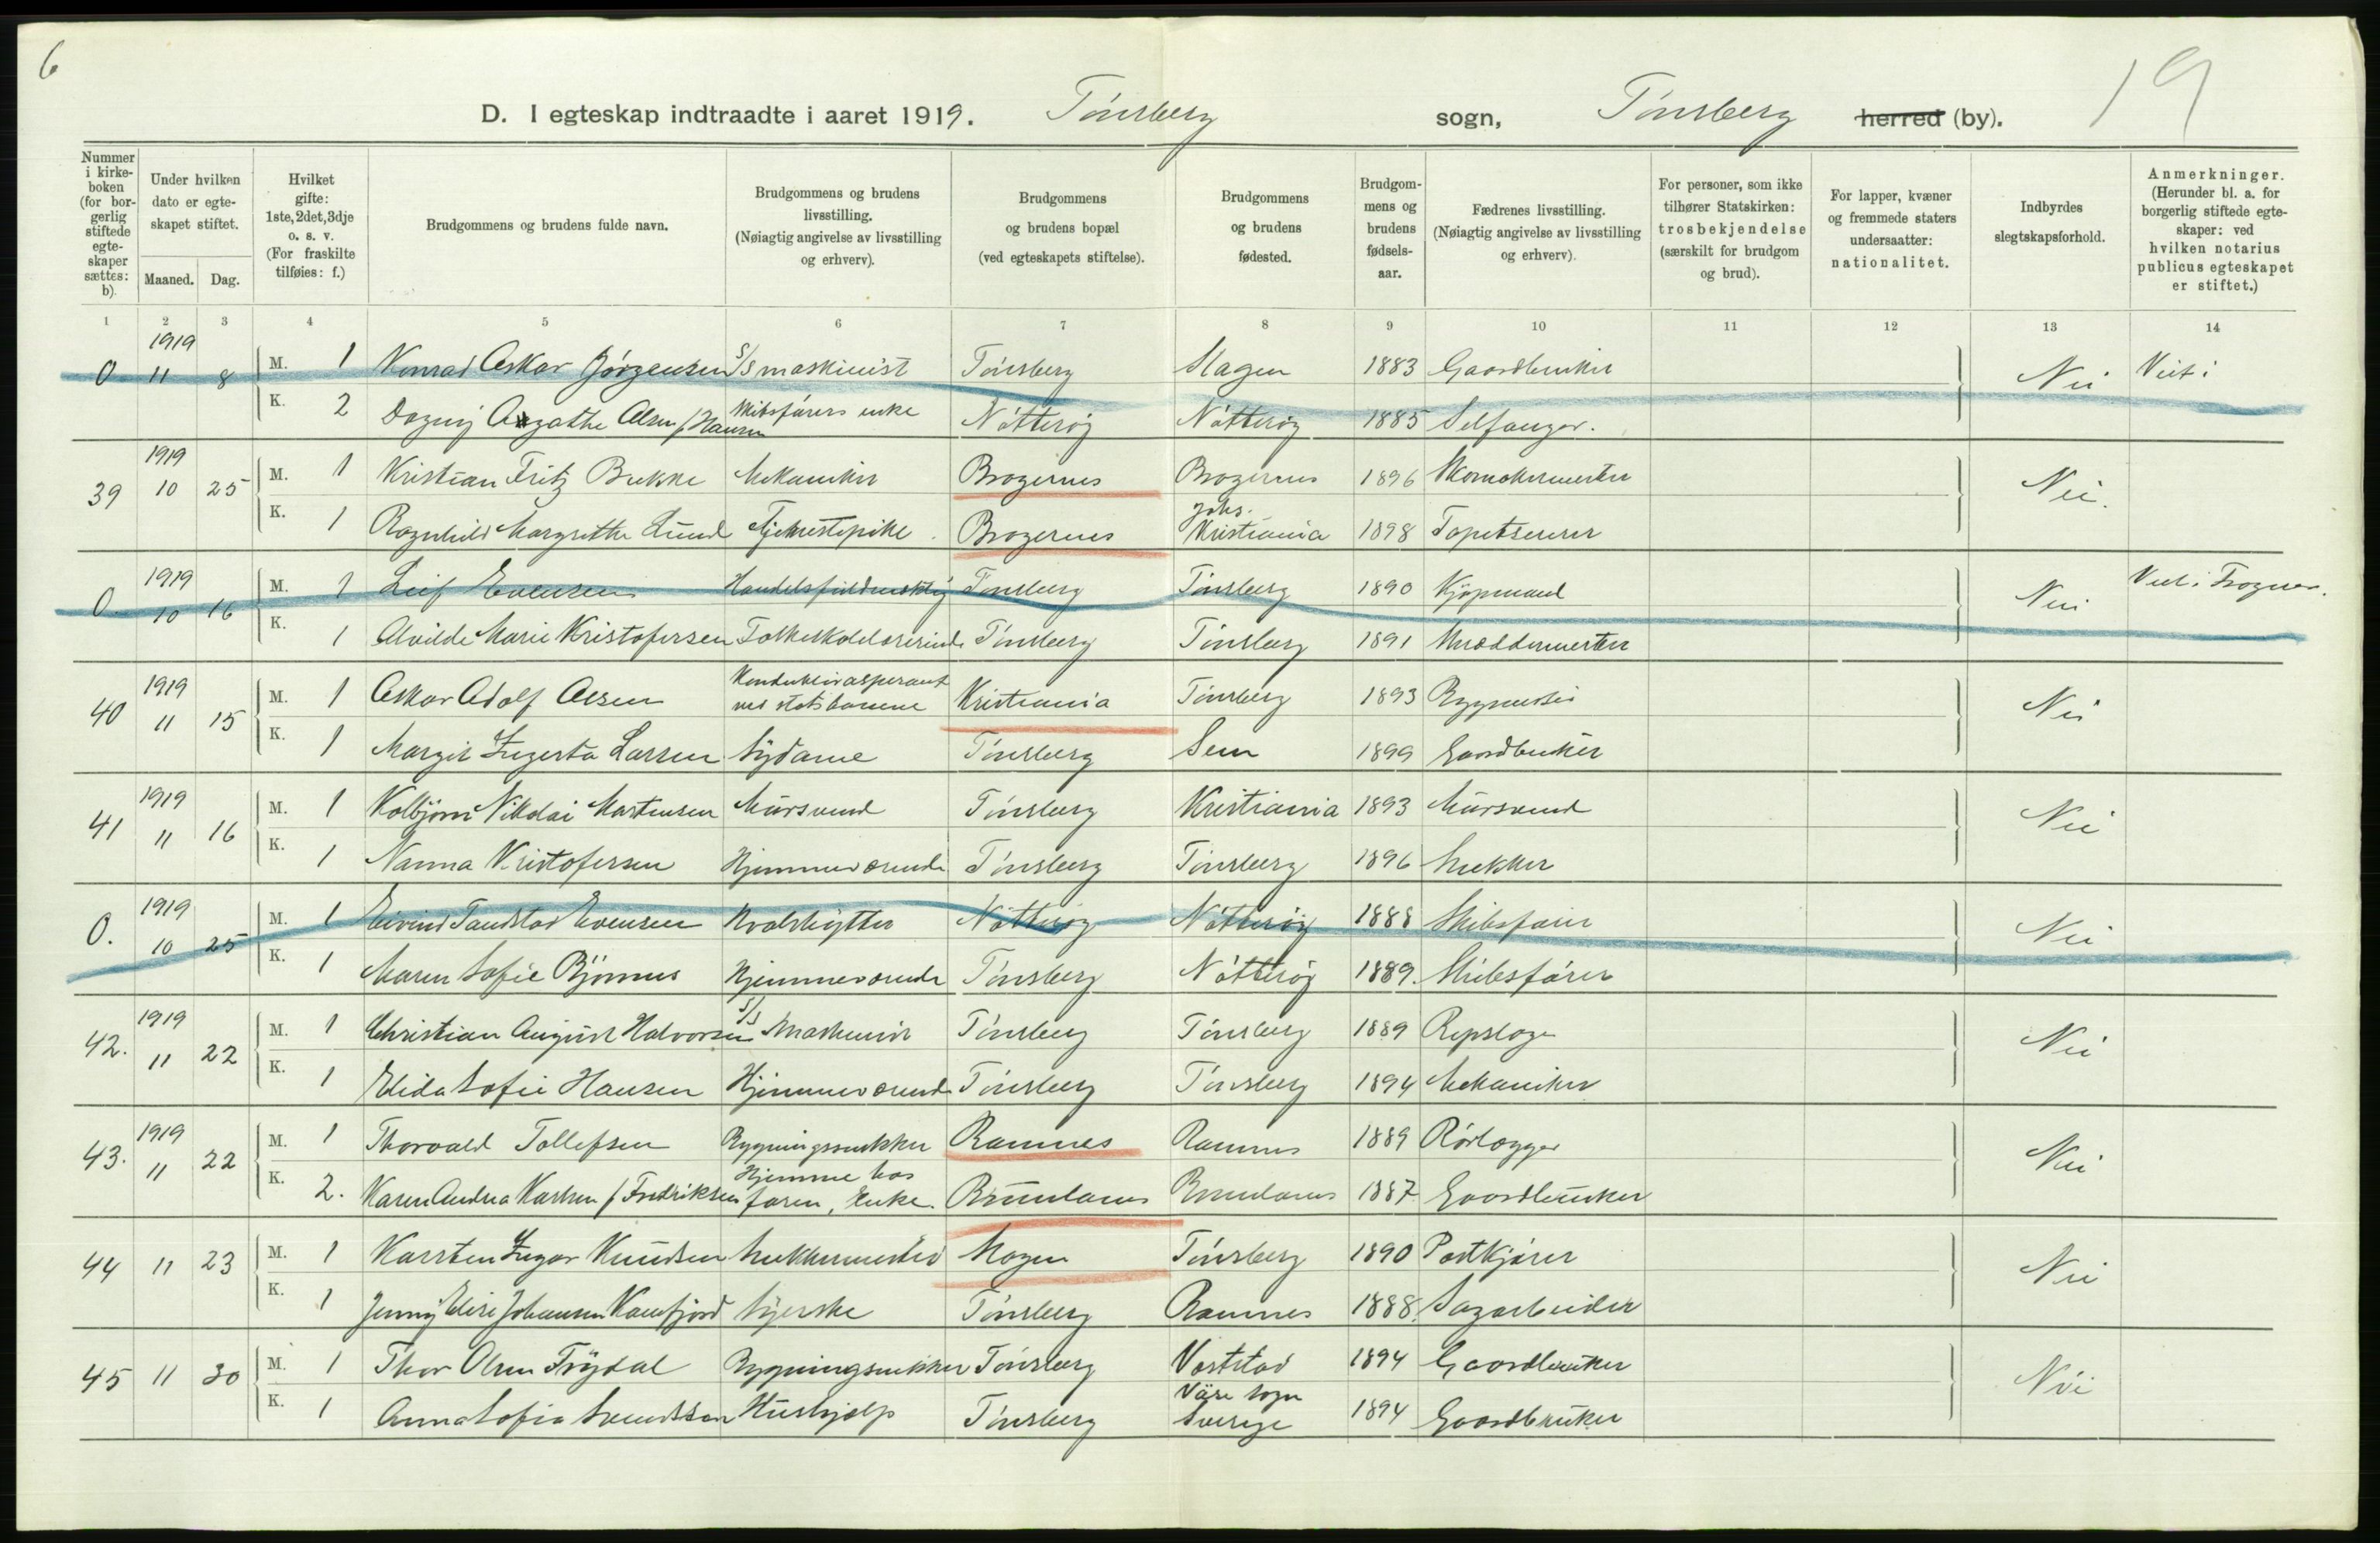 6
19
D. I egteskap indtraadte i aaret 1919. Tönsberg sogn, Tönsberg herred (by).
Nummer i kirke-boken (for bor-gerlig stiftede egte-skaper sættes: b).
Under hvilken dato er egte-skapet stiftet.
Maaned. Dag.
Hvilket gifte: 1ste, 2det, 3dje o. s. v. (For fraskilte tilføies: f.)
Brudgommens og brudens fulde navn.
Brudgommens og brudens livsstilling. (Nøiagtig angivelse av livsstilling og erhverv).
Brudgommens og brudens bopæl (ved egteskapets stiftelse).
Brudgommens og brudens fødested.
Brudgom-mens og brudens fødsels-aar.
Fædrenes livsstilling. (Nøiagtig angivelse av livsstilling og erhverv).
For personer, som ikke tilhører Statskirken: trosbekjendelse (særskilt for brudgom og brud).
For lapper, kvæner og fremmede staters undersaatter: nationalitet.
Indbyrdes slegtskapsforhold.
Anmerkninger. (Herunder bl. a. for borgerlig stiftede egte-skaper: ved hvilken notarius publicus egteskapet er stiftet.)
1 2 3 4 5 6 7 8 9 10 11 12 13 14
1919
0 11 8 M. 1 Konrad Oskar Jörgensen S/S maskinist Tönsberg Slagen 1883 Gaardbruker Nei Viet i
K. 2 Dagny Agathe Olsen f. Hansen Skibsförers enke Nötteröy Nötteröy 1885 Selfanger.
1919
39 10 25 M. 1 Kristian Fritz Bekke Mekaniker Bragernes Bragernes 1896 Skomakermester Nei.
K. 1 Ragnhild Margrethe Lund Tjenestepike Bragernes Johs. Kristiania 1898 Tapetserer
1919
0 10 16 M. 1 Leif Evensen Handelsfuldmektig Tönsberg Tönsberg 1890 Kjöpmand Nei Viet i Frogner.
K. 1 Alvilde Marie Kristofersen Folkeskolelærerinde Tönsberg Tönsberg 1891 Skreddermester
1919
40 11 15 M. 1 Oskar Adolf Olsen Konduktöraspirant ved statsbanene Kristiania Tönsberg 1893 Nei
K. 1 Margit Ingerta Larsen Sydame Tönsberg Sem 1899 Gaardbruker
1919
41 11 16 M. 1 Kolbjörn Nikolai Martensen Mursvend Tönsberg Kristiania 1893 Mursvend Nei
K. 1 Nanna Kristofersen Hjemmeværende Tönsberg Tönsberg 1896 Snekker
1919
0. 10 25 M. 1 Eivind Tandstad Evensen Hvalskytter Nötteröy Nötteröy 1888 Skibsförer Nei
K. 1 Maren Sofie Björnnes Hjemmeværende Tönsberg Nötteröy 1889. Skibsförer
1919
42. 11 22 M. 1 Christian August Halvorsen S/S Maskinist Tönsberg Tönsberg 1889 Repslager Nei
K. 1 Elida Sofie Hansen Hjemmeværende Tönsberg Tönsberg 1894 Mekaniker
1919
43. 11 22 M. 1 Thorvald Tollefsen Bygningssnekker Ramnes Ramnes 1889 Rörlægger Nei
K. 2. Karen Andrea Karlsen f. Fredriksen Hjemme hos faren, Enke. Brunlanes Brunlanes 1887 Gaardbruker
44 11 23 M. 1 Karsten Ingar Knudsen Snekkermester Slagen Tönsberg 1890 Postkjörer Nei
K. 1 Jenny Elise Johansen Syerske Tönsberg Ramnes 1888. Sagarbeider
45 11 30 M. 1 Thor Olsen Tröydal Bygningsnekker Tönsberg 1894 Gaardbruker Nei
K. 1 Anna Sofia Svendssan Hushjælp Tönsberg sogn Sverige 1894 Gaardbruker